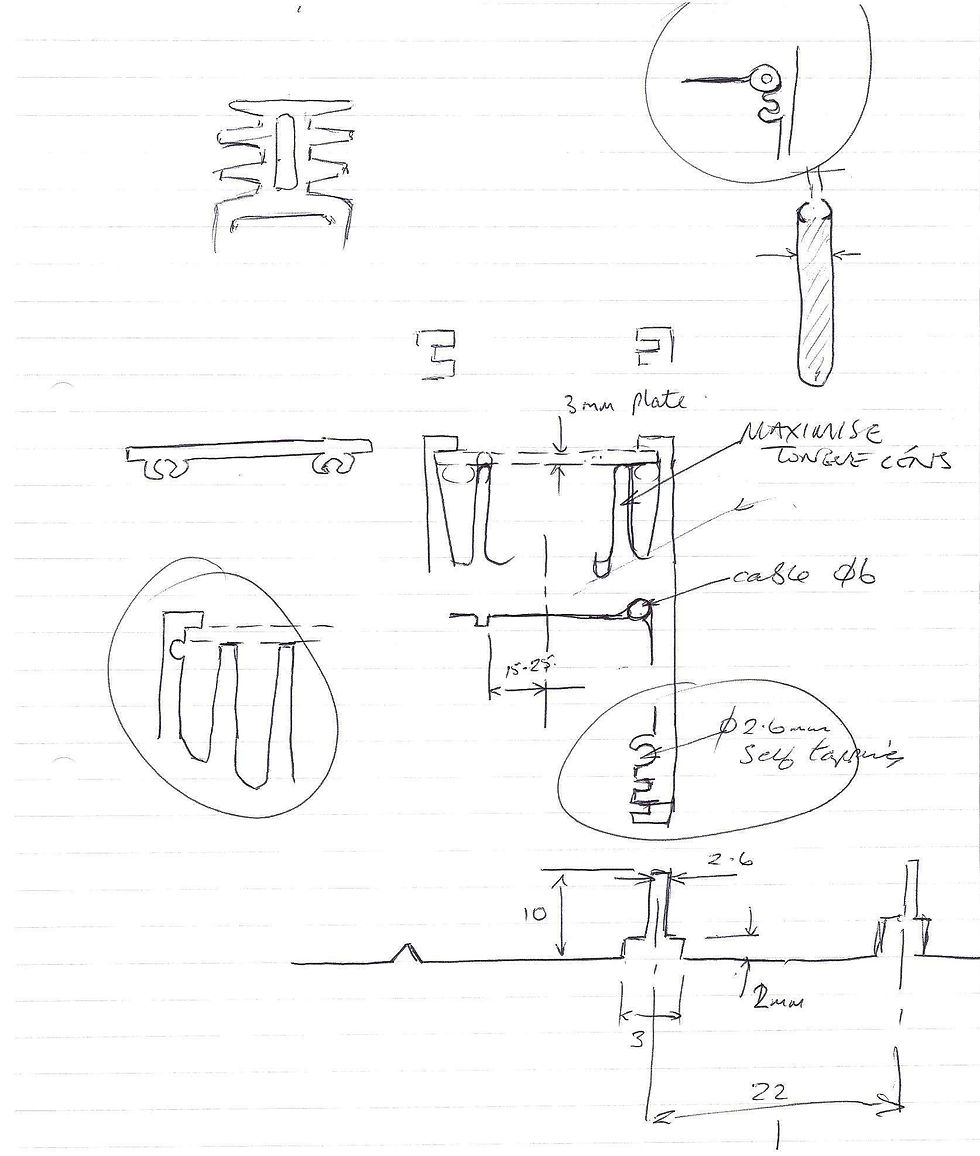 3mm plate
MAXIMISE
TONGUE CENS
cable ø6
15-25
ø2.6mm
self tapping
2.6
10
2mm
3
22